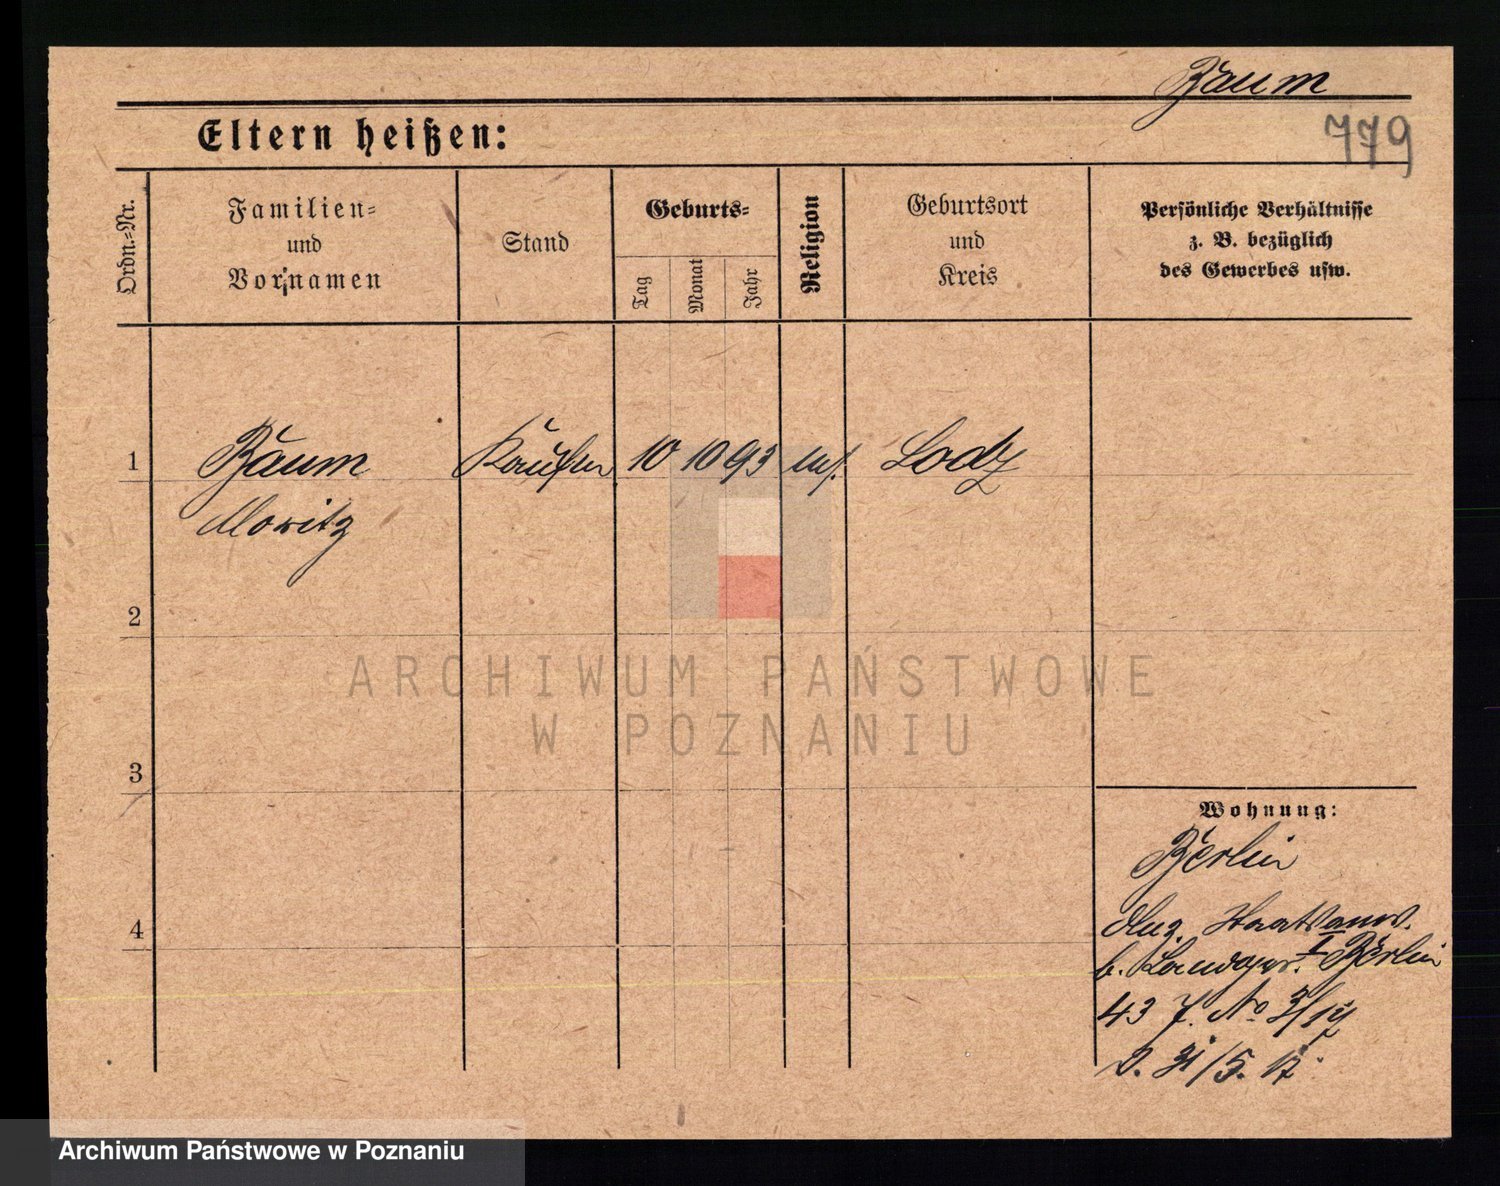 Baum
779
Eltern heißen:
Ordn.-Nr.
Familien-
und
Vornamen
Stand
Geburts-
Tag
Monat
Jahr
Religion
Geburtsort
und
Kreis
Persönliche Verhältnisse
z. B. bezüglich
des Gewerbes usw.
1 Baum Kaufm 10 10 93 Lodz
Moritz
2
ARCHIWUM PAŃSTWOWE
W POZNANIU
3
Wohnung:
Berlin
4
Staatsanw.
b. Landger. I Berlin
43 J. No 3/17
v. 31/5. 17
Archiwum Państwowe w Poznaniu